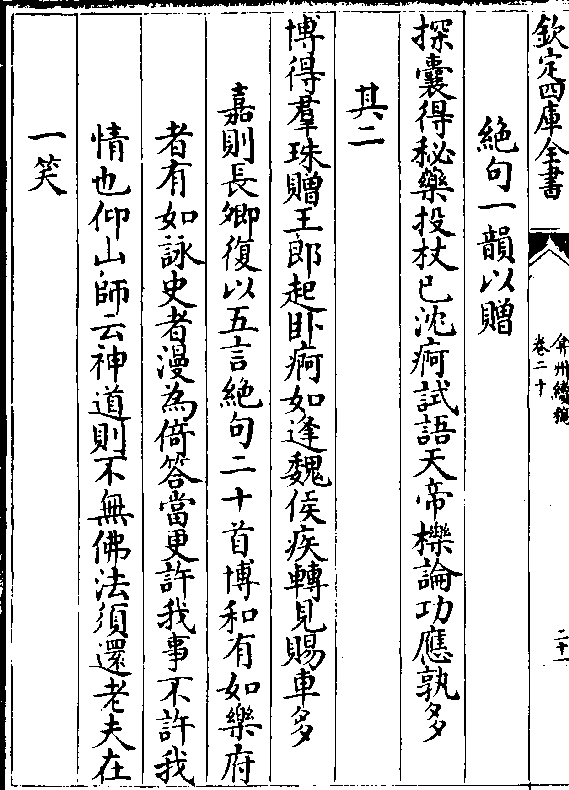 欽定四庫全書
弇州續稿
卷二十
二十一
絶句一韻以贈
探囊得秘藥投杖已沈痾試語天帝櫟論功應孰多
其二
博得羣珠贈王郎起卧痾如逢魏侯疾轉見賜車多
嘉則長卿復以五言絶句二十首博和有如樂府
者有如詠史者漫為倚答當更許我事不許我
情也仰山師云神道則不無佛法須還老夫在
一笑